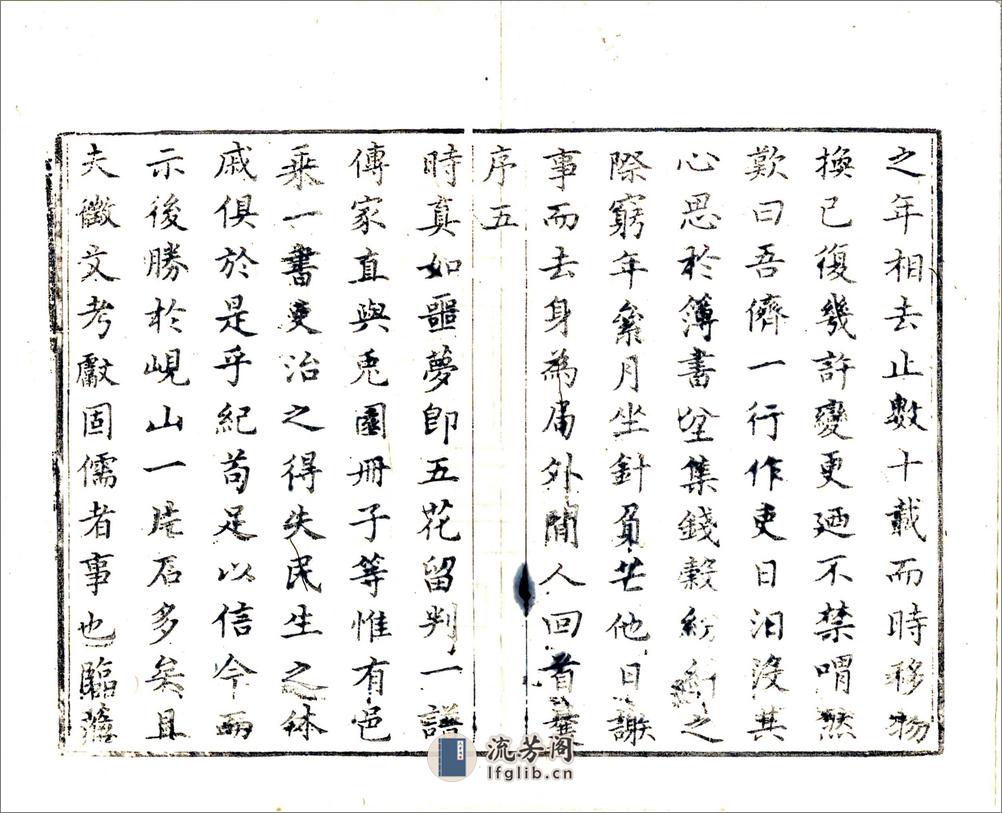 之年相去止數十載而時移物
換已復幾許變更廼不禁喟然
歎曰吾儕一行作吏日汨沒其
心思於簿書坌集錢穀紛紜之
際窮年絫月坐針負芒他日謝
事而去身為局外閒人回首曩
序五
時真如噩夢即五花留判一譜
傳家直與兎園冊子等惟有邑
乘一書吏治之得失民生之休
戚俱於是乎紀苟足以信今而
示後勝於峴山一片石多矣且
夫徵文考獻固儒者事也臨
流芳阁
lfglib.cn